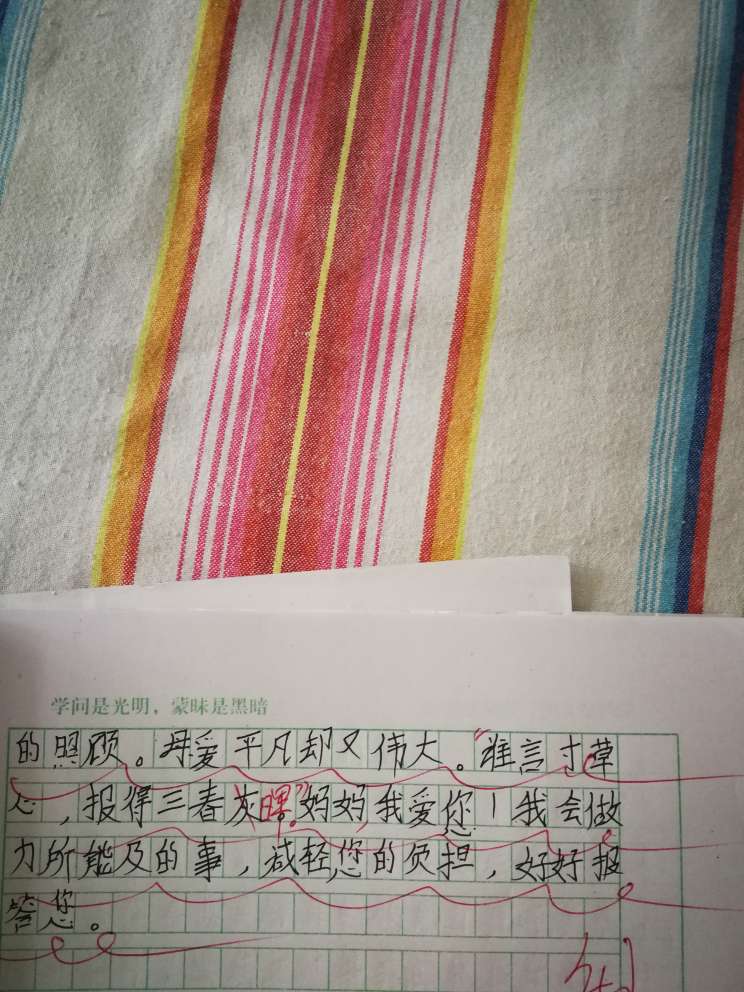 学问是光明，蒙昧是黑暗
的照顾。母爱平凡却又伟大。“谁言寸草
心，报得三春灰晖。”妈妈，我爱您！我会做
力所能及的事，减轻您的负担，好好报
答您。